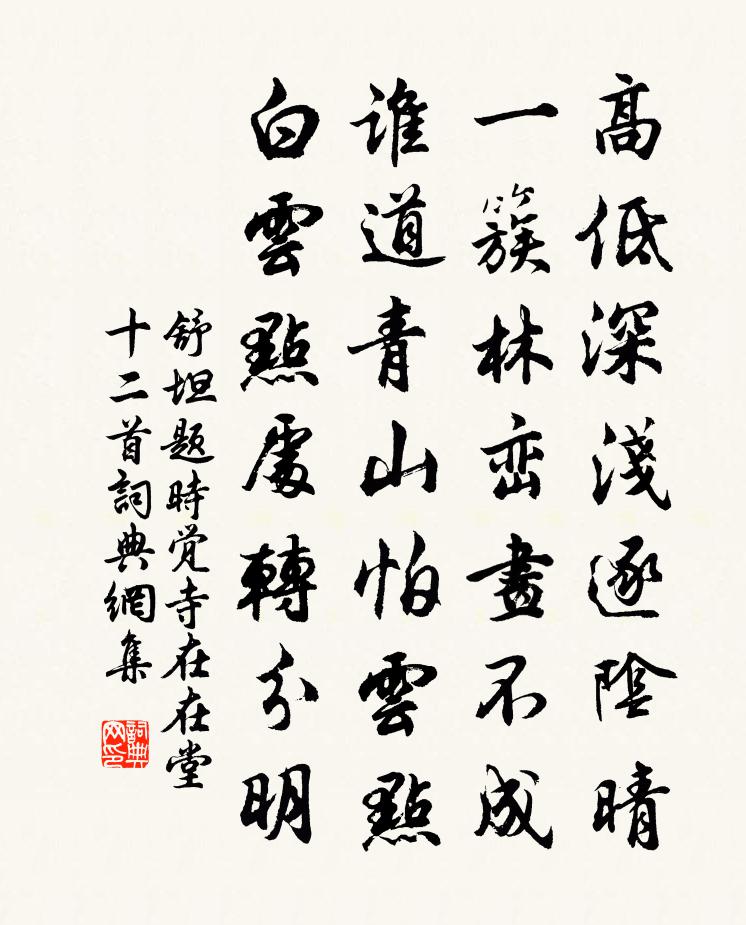 高低深淺逐陰晴
一簇林巒畫不成
誰道青山怕雲點
白雲點處轉分明
舒坦题時觉寺在在堂
十二首詞典網集
詞典
网印